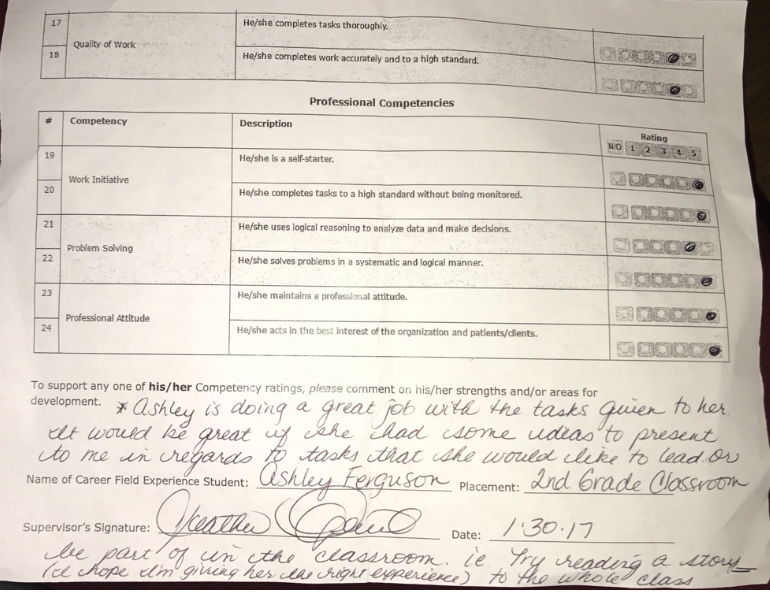 17 He/she completes tasks thoroughly.
Quality of Work
18 He/she completes work accurately and to a high standard.
Professional Competencies
# Competency Description Rating
N/O 1 2 3 4 5
19 He/she is a self-starter.
Work Initiative
20 He/she completes tasks to a high standard without being monitored.
21 He/she uses logical reasoning to analyze data and make decisions.
Problem Solving
22 He/she solves problems in a systematic and logical manner.
23 He/she maintains a professional attitude.
Professional Attitude
24 He/she acts in the best interest of the organization and patients/clients.
To support any one of his/her Competency ratings, please comment on his/her strengths and/or areas for
development. * Ashley is doing a great job with the tasks given to her.
It would be great if she had some ideas to present
to me in regards to tasks that she would like to lead or
Name of Career Field Experience Student: Ashley Ferguson Placement: 2nd Grade Classroom
Supervisor's Signature: Heather Date: 1·30·17
be part of in the classroom. ie. Try reading a story
(I hope I'm giving her the right experience) to the whole class